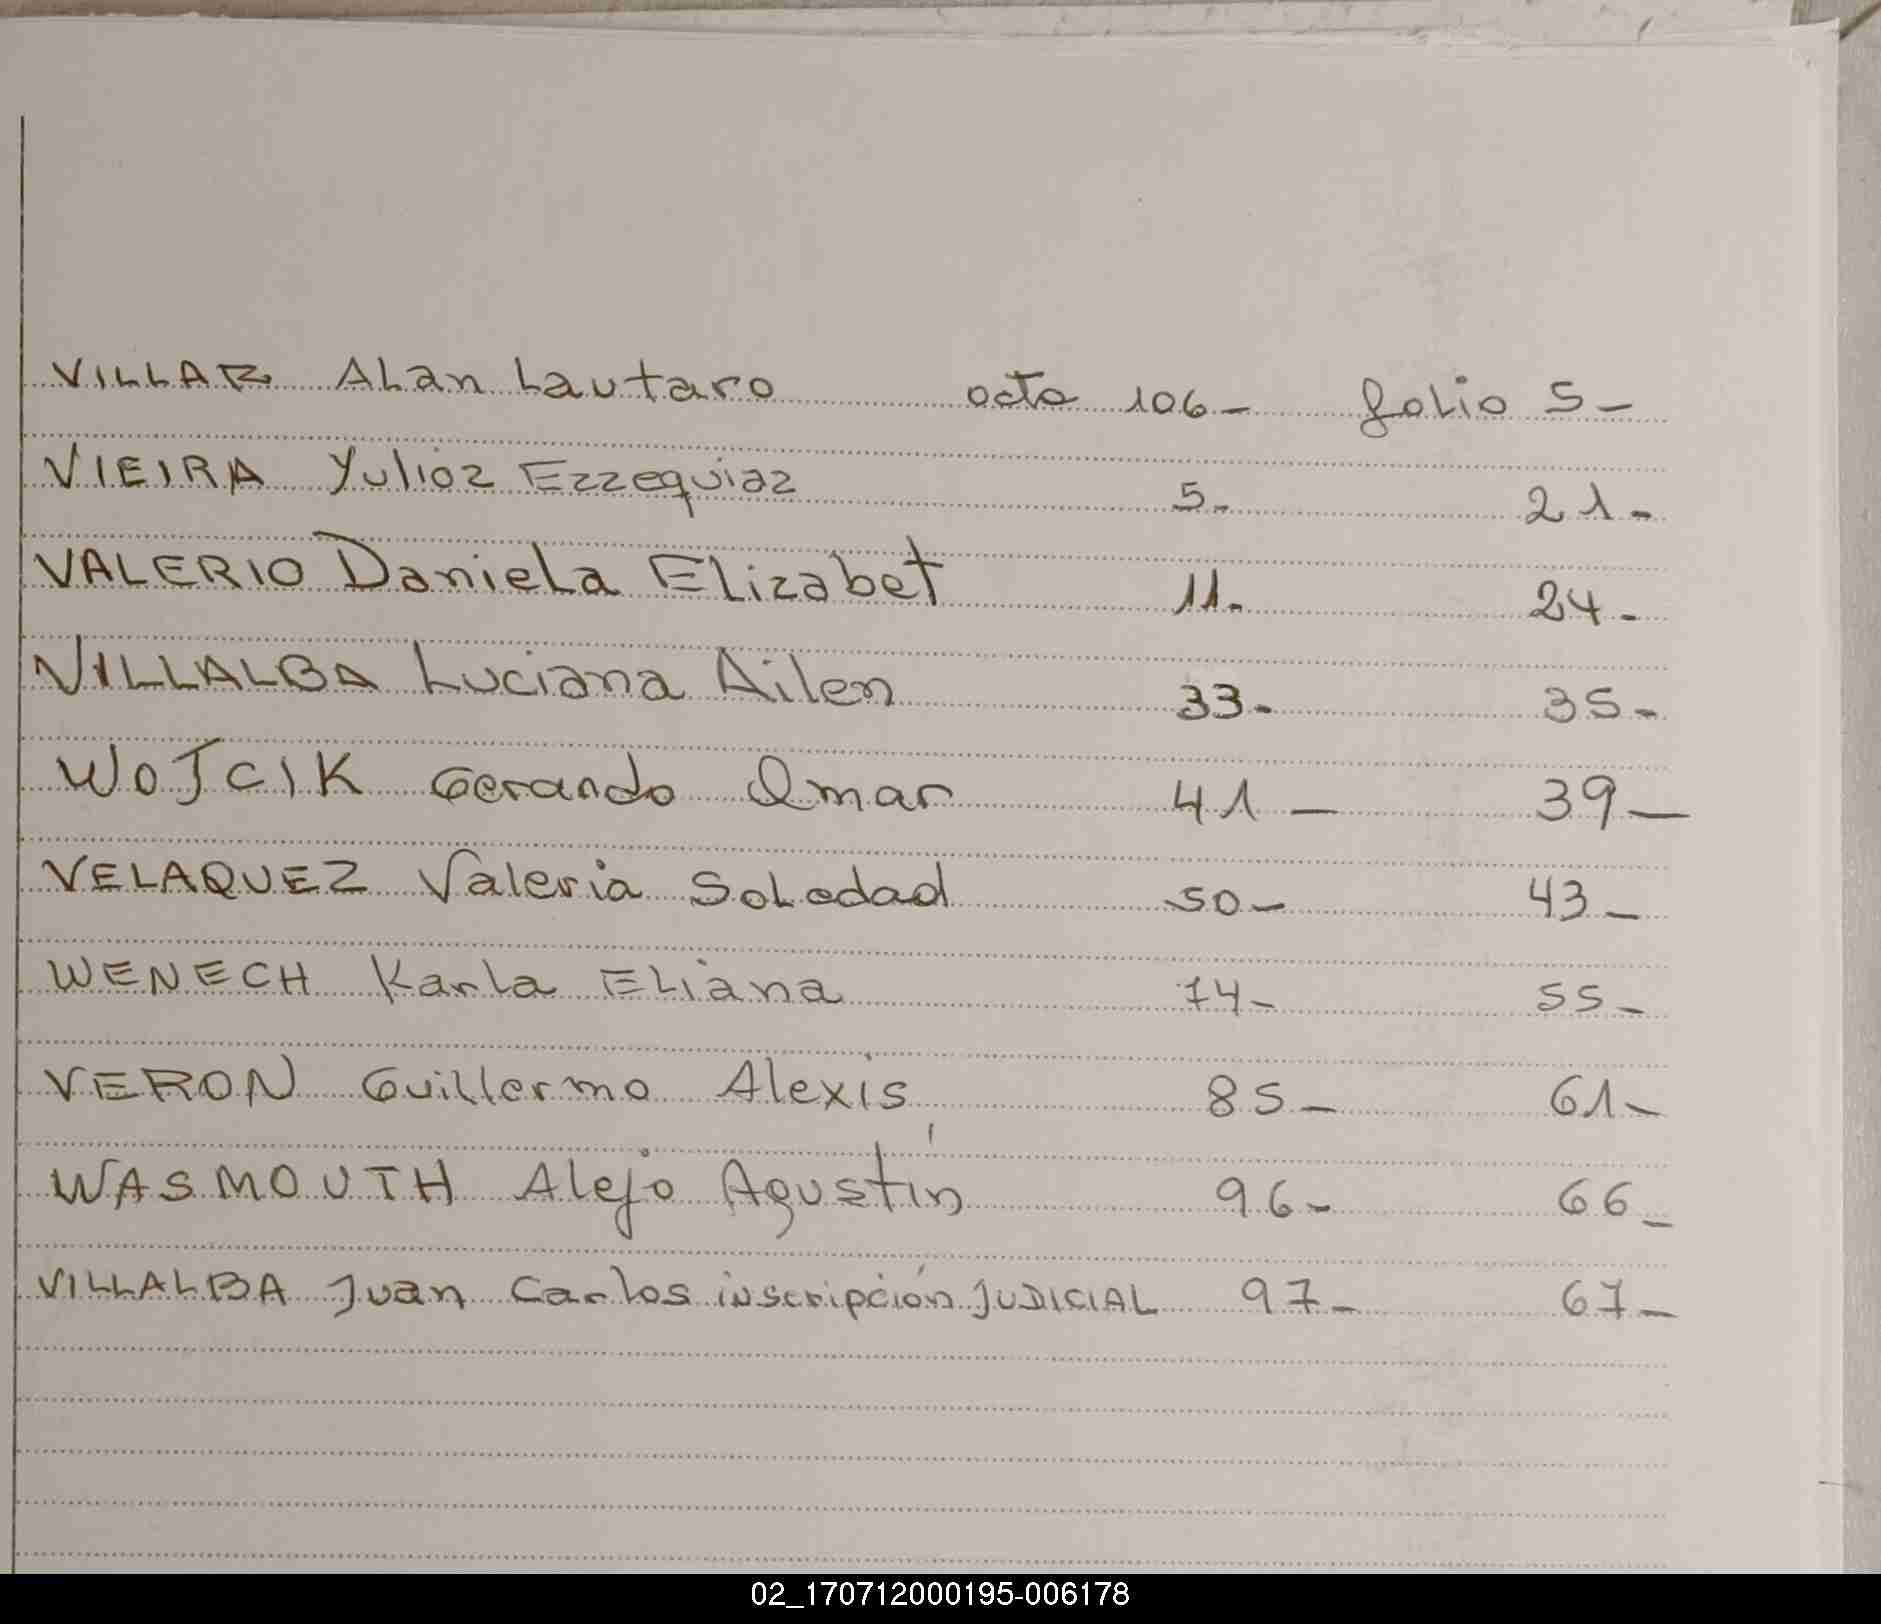 VILLAR Alan Lautaro acta 106- folio 5-
VIEIRA Yulioz Ezzequiaz 5- 21-
VALERIO Daniela Elizabet 11- 24-
VILLALBA Luciana Ailen 33- 35-
WOJCIK Gerardo Omar 41- 39-
VELAQUEZ Valeria Soledad 50- 43-
WENECH Karla Eliana 74- 55-
VERON Guillermo Alexis 85- 61-
WASMOUTH Alejo Agustín 96- 66-
VILLALBA Juan Carlos inscripción JUDICIAL 97- 67-
02_170712000195-006178